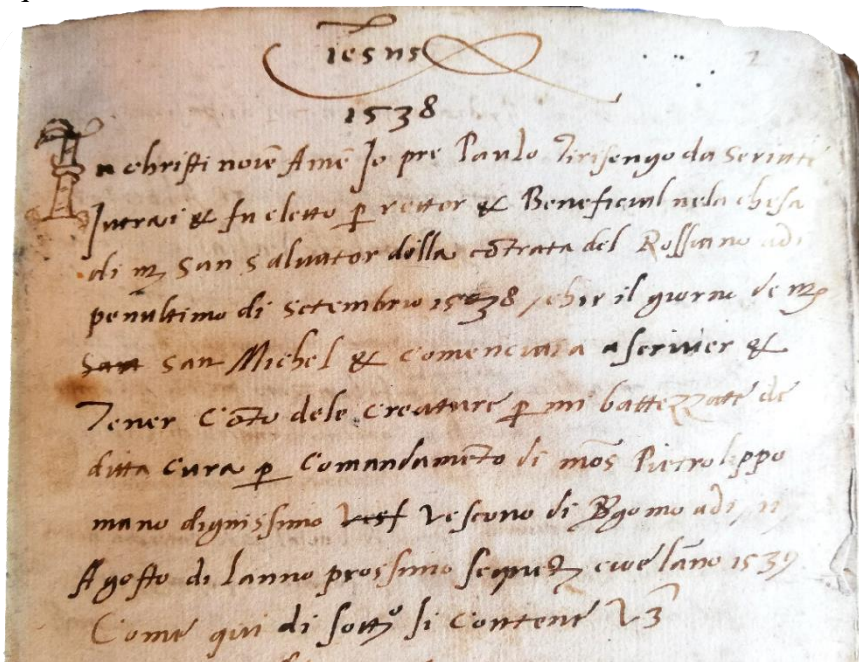 Iesus
1538
In christi nome Ame Jo pre Paulo Tirisengo da Seriate
Intrai & fu eletto p rettor & Beneficial nela chesa
di San Salvator della cotrata del Rossano adi
penultimo di Setembrio 1538 il giorno de
San San Michel & Comenciara a scriver &
Tener Coto dele Creature p mi battezzate de
ditta Cura p Comandameto di mos Pietro lippo
mano dignissimo Vesf Vescovo di Bgomo adi
Agosto di lanno prossimo seque cioe lano 1539
Come qui di sotto si Contene Vz